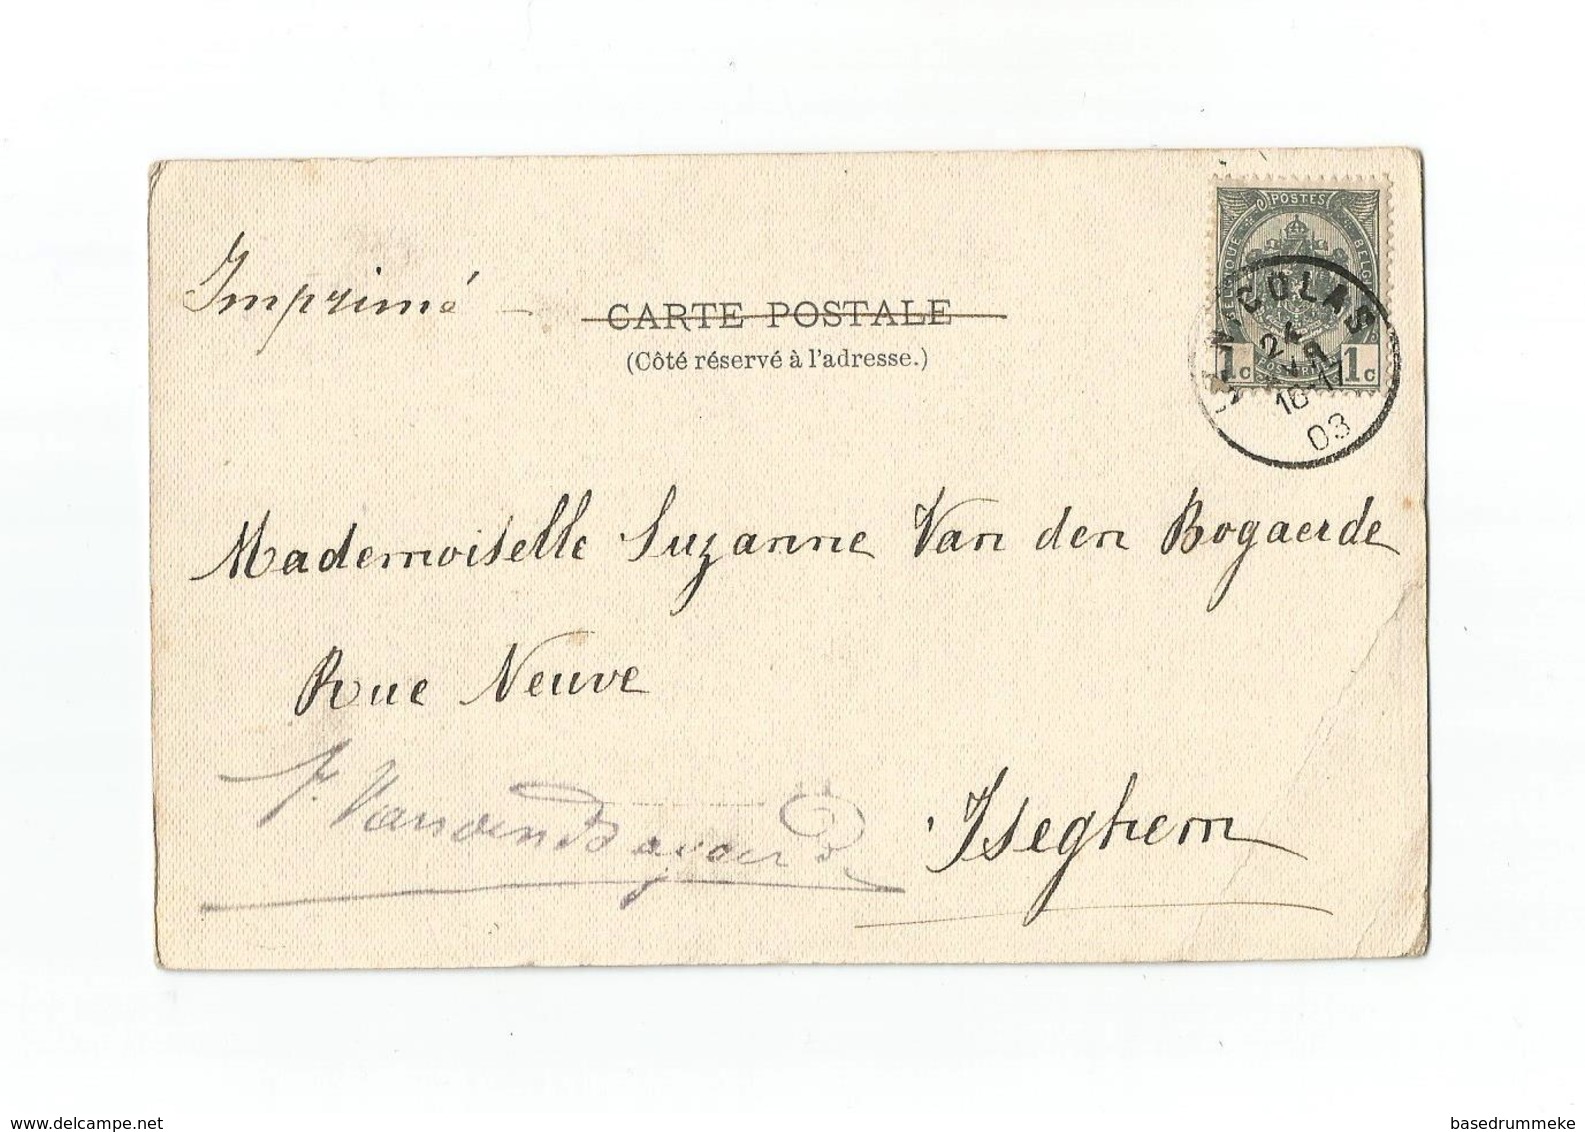 Imprimé
CARTE POSTALE
(Côté réservé à l'adresse.)
POSTES
BELGIQUE BELGI
1c 1c
COLAS
24
16-17
03
Mademoiselle Suzanne Van den Bogaerde
Rue Neuve
Iseghem
www.delcampe.net
basedrummeke